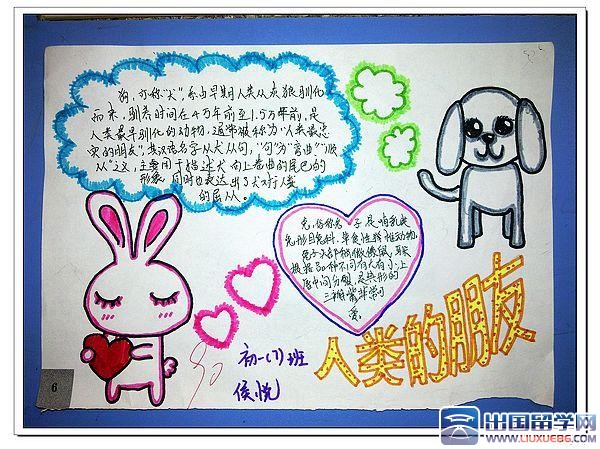 狗，亦称"犬"，系由早期人类从灰狼驯化
而来，驯养时间在4万年前至1.5万年前，是
人类最早驯化的动物。通常被称为"人类最忠
实的朋友"。其汉语名字从犬从句，"句"为"弯曲""顺
从"之义，主要用于描述犬向上卷曲的尾巴的
形象，同时也表达出了犬对于人类
的屈从。
兔，俗称兔子，是哺乳类
兔形目兔科，草食性脊椎动物。
兔子头部
根据
三瓣嘴非常可
爱。
初一(7)班
侯悦
人类的朋友
6
90
出国留学网
WWW.LIUXUE86.COM